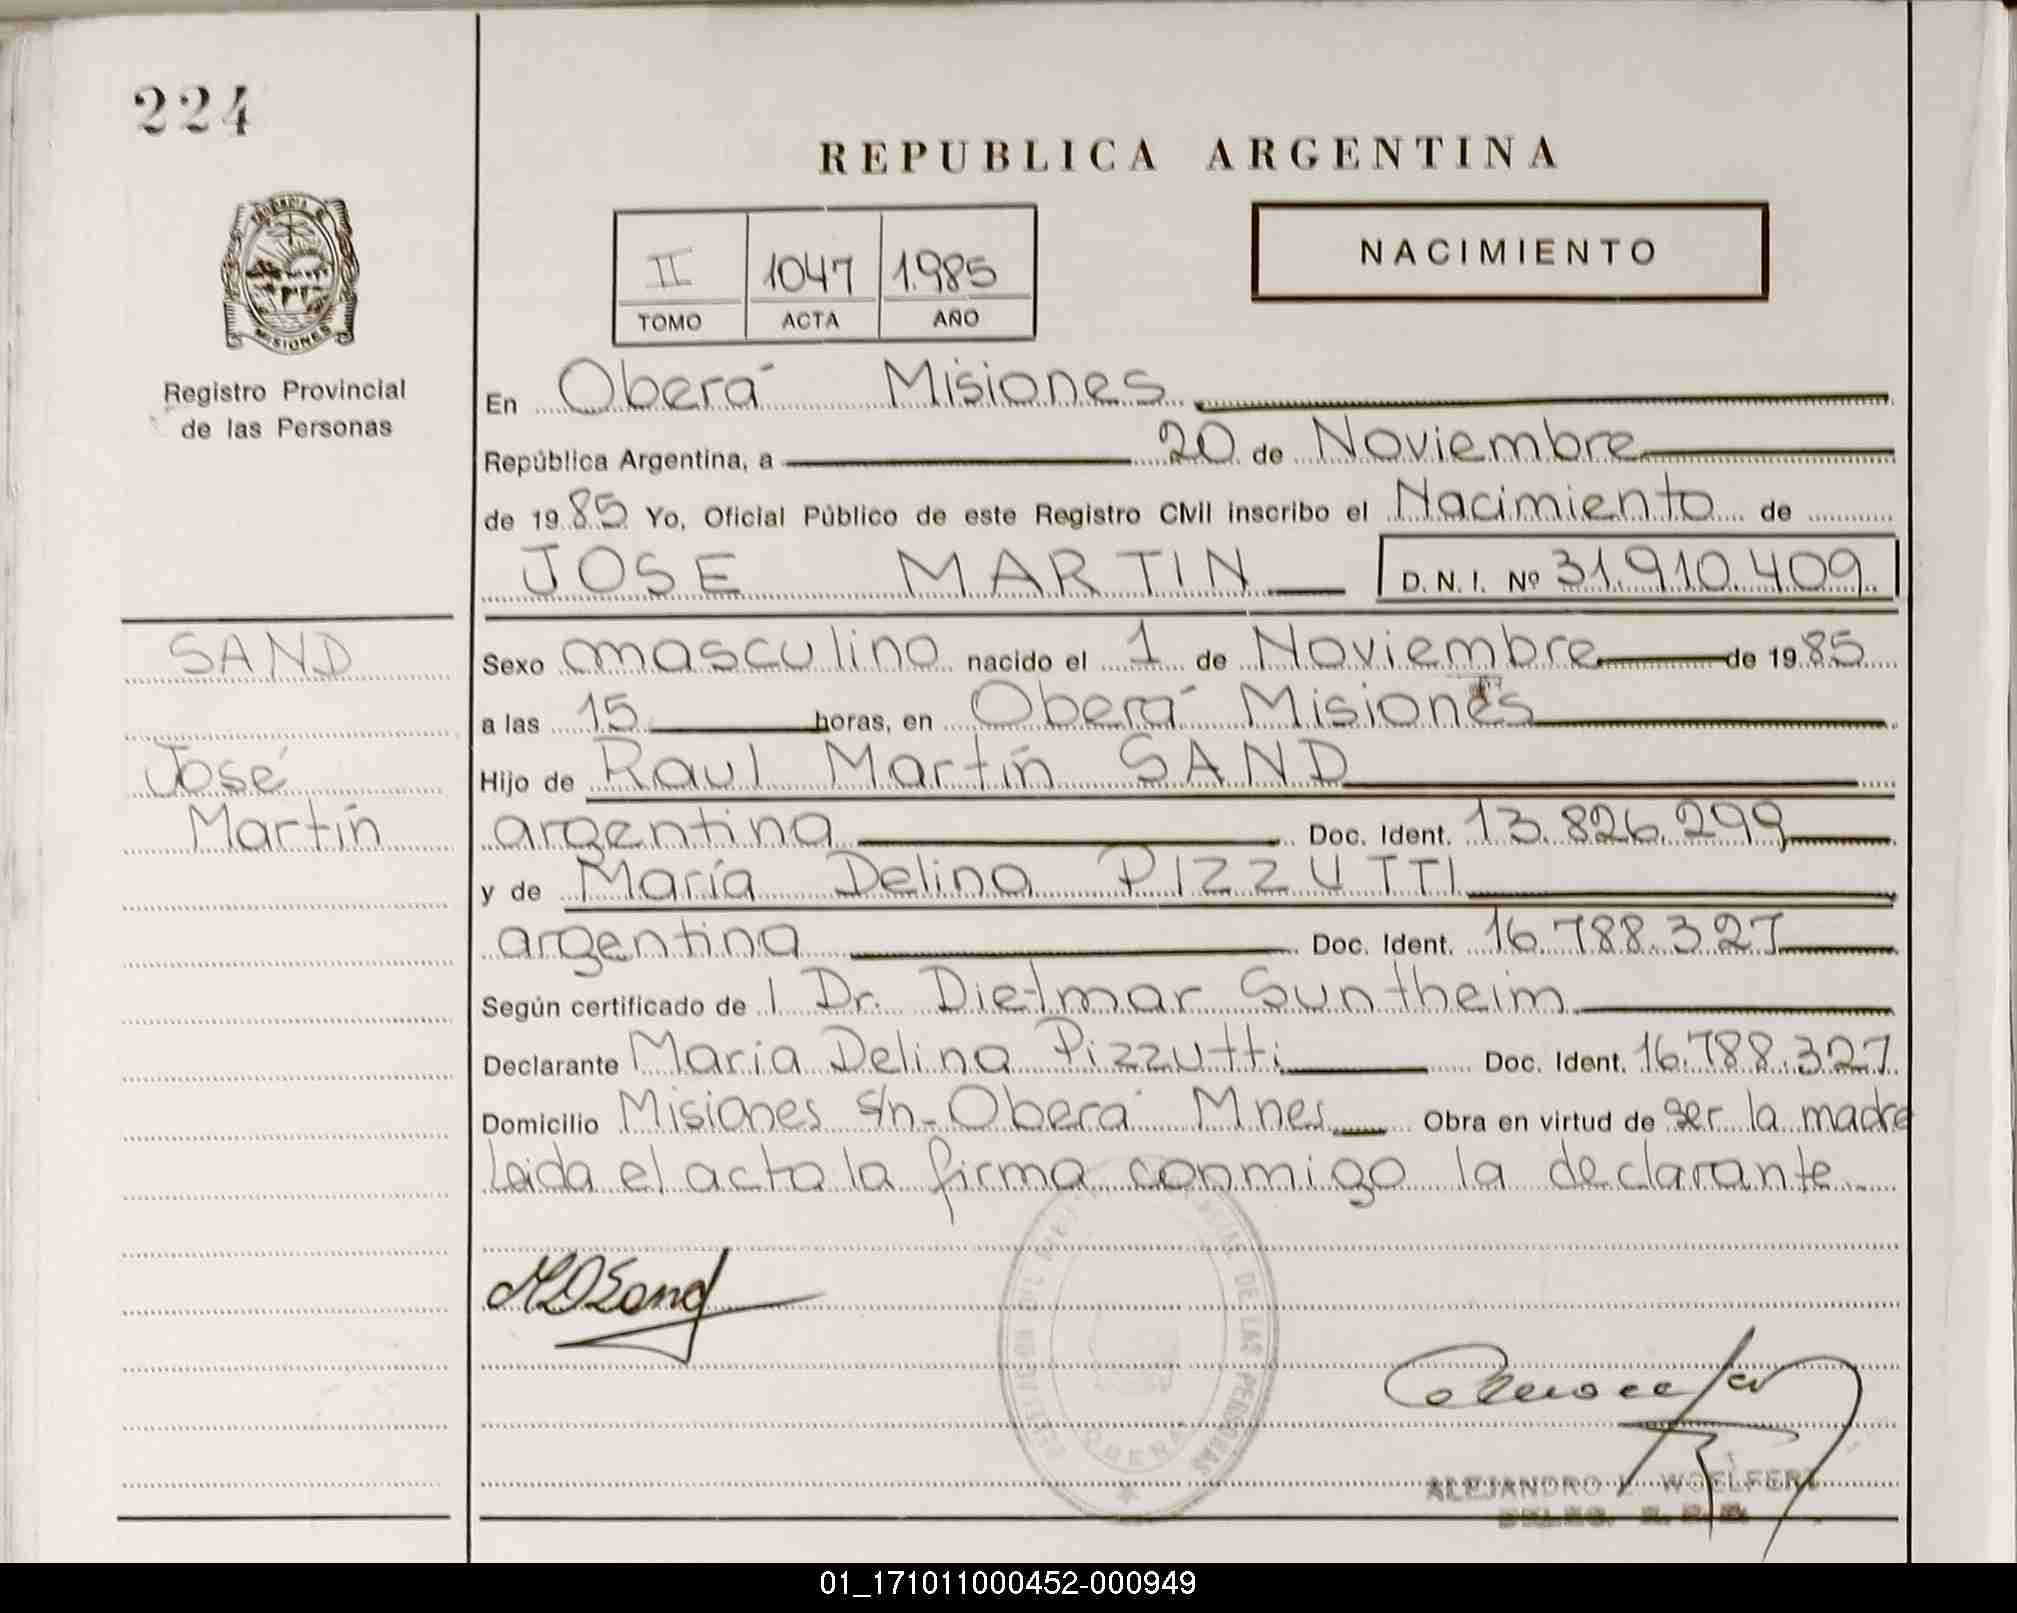 224
REPUBLICA ARGENTINA
II 1047 1.985
TOMO ACTA AÑO
NACIMIENTO
MISIONES
Registro Provincial
de las Personas
En Oberá Misiones
República Argentina, a 20 de Noviembre
de 1985 Yo, Oficial Público de este Registro Civil inscribo el Nacimiento de
JOSE MARTIN D. N. I. Nº 31.910.409
SAND
José
Martín
Sexo masculino nacido el 1 de Noviembre de 1985
a las 15 horas, en Oberá Misiones
Hijo de Raul Martín SAND
argentina Doc. Ident. 13.826.299
y de María Delina PIZZUTTI
argentina Doc. Ident. 16.788.327
Según certificado de l Dr. Dietmar Suntheim
Declarante Maria Delina Pizzutti Doc. Ident. 16.788.327
Domicilio Misiones s/n - Oberá Mnes Obra en virtud de ser la madre
Leida el acta la firma conmigo la declarante
MDSand
DE LAS PERSONAS
OBERA
ALEJANDRO WOELFERT
01_171011000452-000949